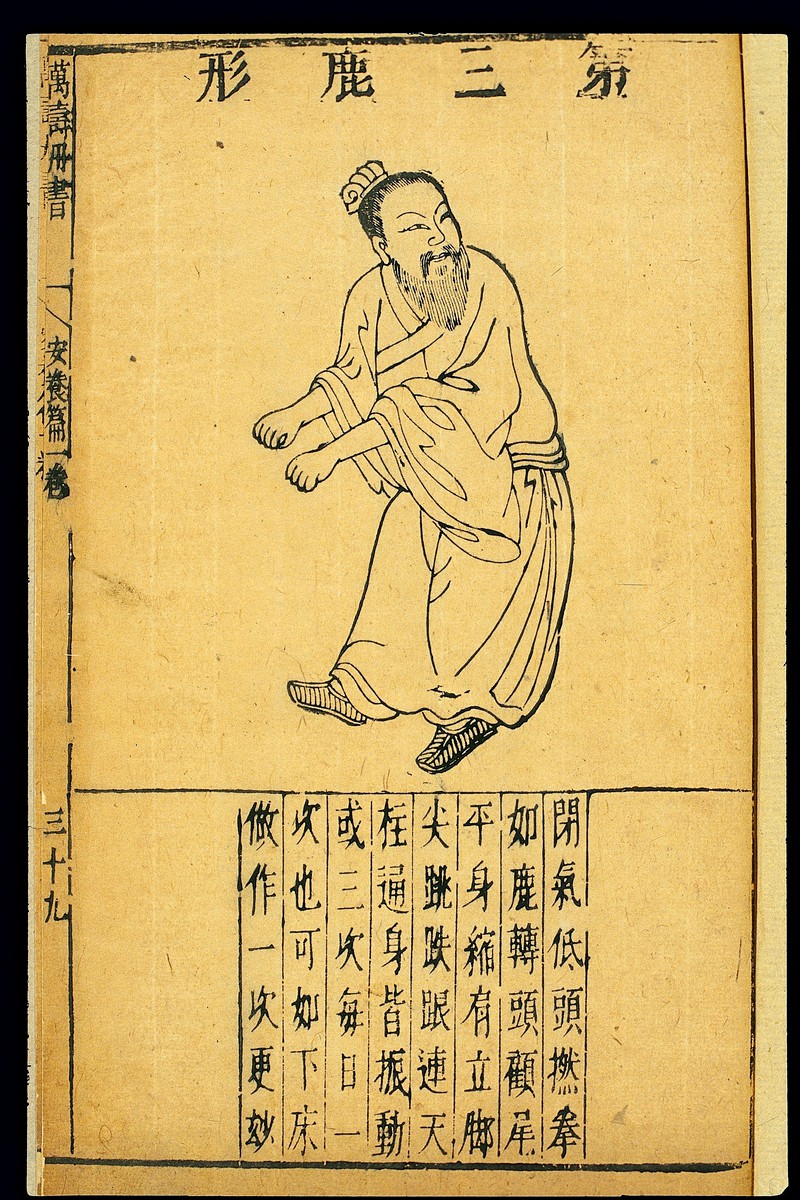 第三鹿形
閉氣低頭撚拳
如鹿轉頭顧尾
平身縮肩立脚
尖跳跌跟連天
柱通身皆振動
或三次每日一
次也可如下床
做作一次更妙
萬壽丹書
安養篇一卷
三十九